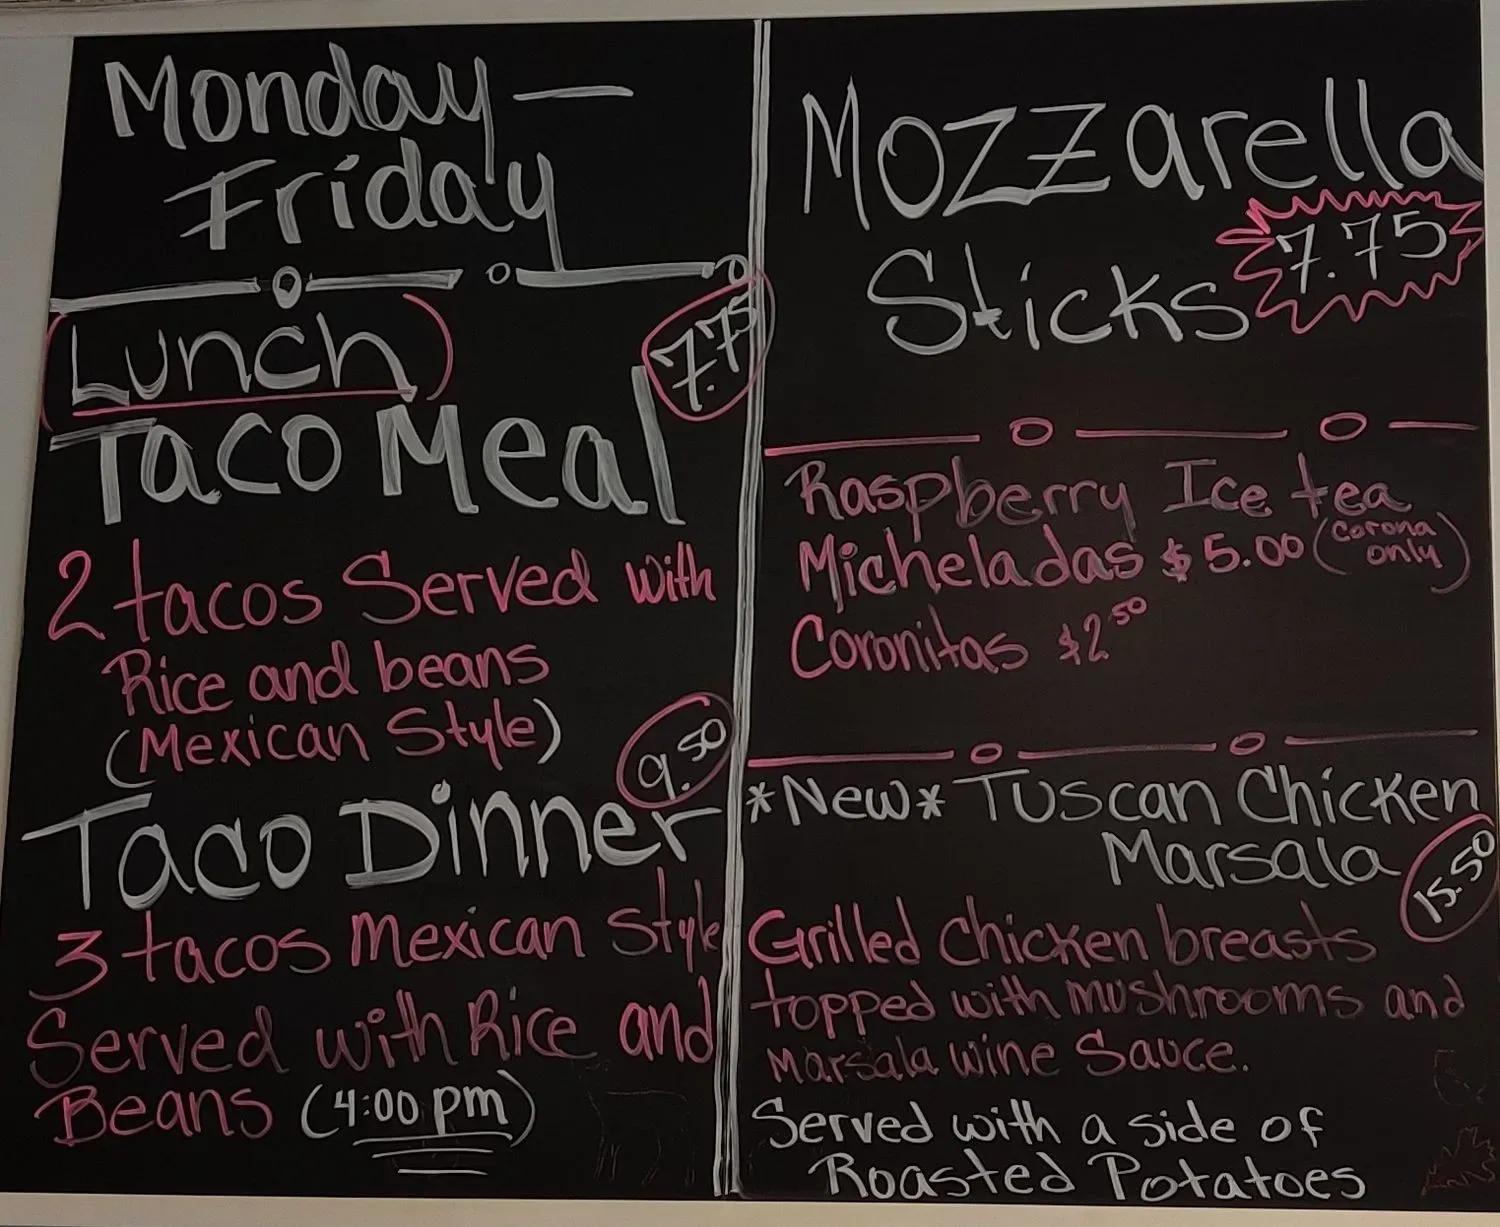 Monday —
Friday
Lunch
Taco Meal 7.75
2 tacos Served with
Rice and beans
(Mexican Style)
Taco Dinner 9.50
3 tacos Mexican Style
Served with Rice and
Beans (4:00 pm)
Mozzarella
Sticks 7.75
Raspberry Ice tea
Micheladas $5.00 (Corona only)
Coronitas $2.50
*New* Tuscan Chicken
Marsala 15.50
Grilled Chicken breasts
topped with mushrooms and
Marsala wine Sauce.
Served with a side of
Roasted Potatoes